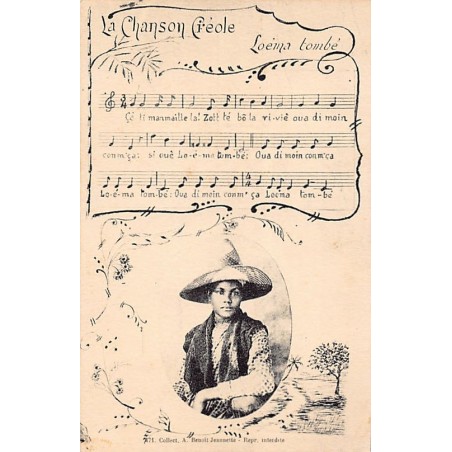 La Chanson Créole
Loéma tombé
Çé ti manmaille la! Zott té bô la ri-viè oua di moin
conm'ça: si ouè Lo-é-ma tom-bé: Oua di moin conm'ça
Lo-é-ma tom-bé: Oua di moin conm'ça Loéma tom-bé
71. Collect. A. Benoit Jeannette - Repr. interdite